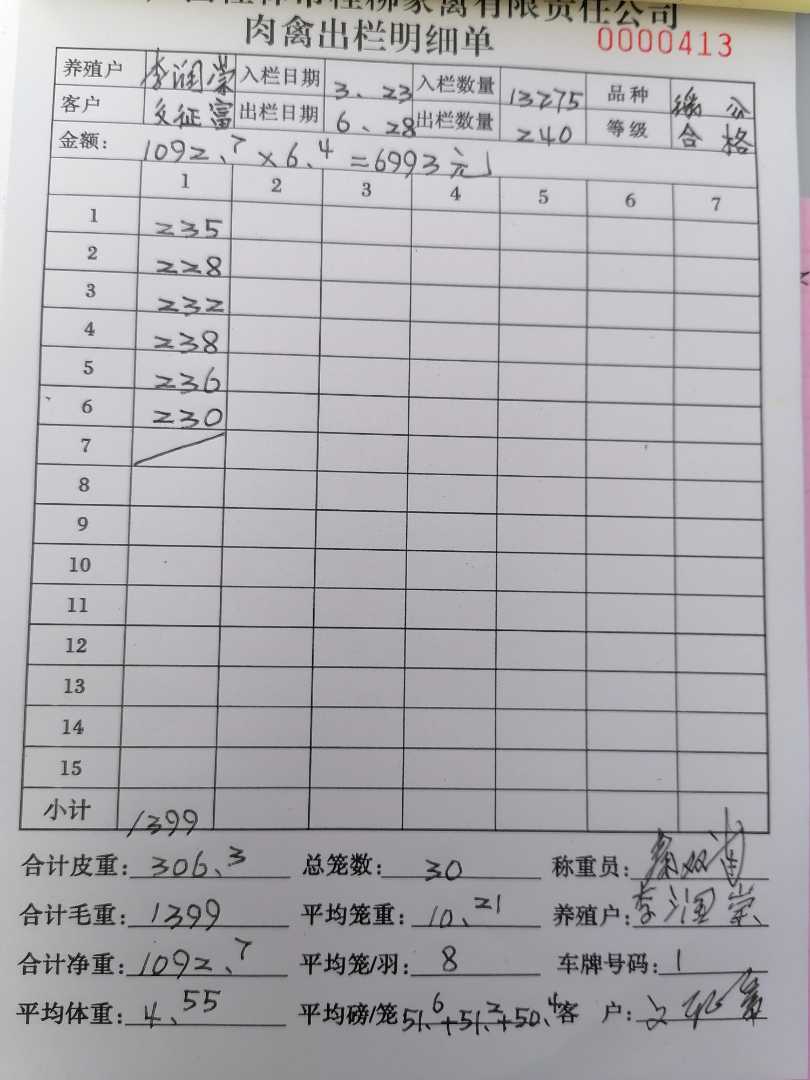 桂柳家禽有限责任公司
肉禽出栏明细单 0000413
养殖户 李润荣 入栏日期 3、23 入栏数量 13275 品种
客户 文征富 出栏日期 6、28 出栏数量 240 等级 合格
金额: 1092.7 × 6.4 = 6993元
1 2 3 4 5 6 7
1 235
2 228
3 232
4 238
5 236
6 230
7
8
9
10
11
12
13
14
15
小计 1399
合计皮重: 306.3 总笼数: 30 称重员:
合计毛重: 1399 平均笼重: 10.21 养殖户: 李润荣
合计净重: 1092.7 平均笼/羽: 8 车牌号码: 1
平均体重: 4.55 平均磅/笼 51.6+51.2+50.4 客 户: